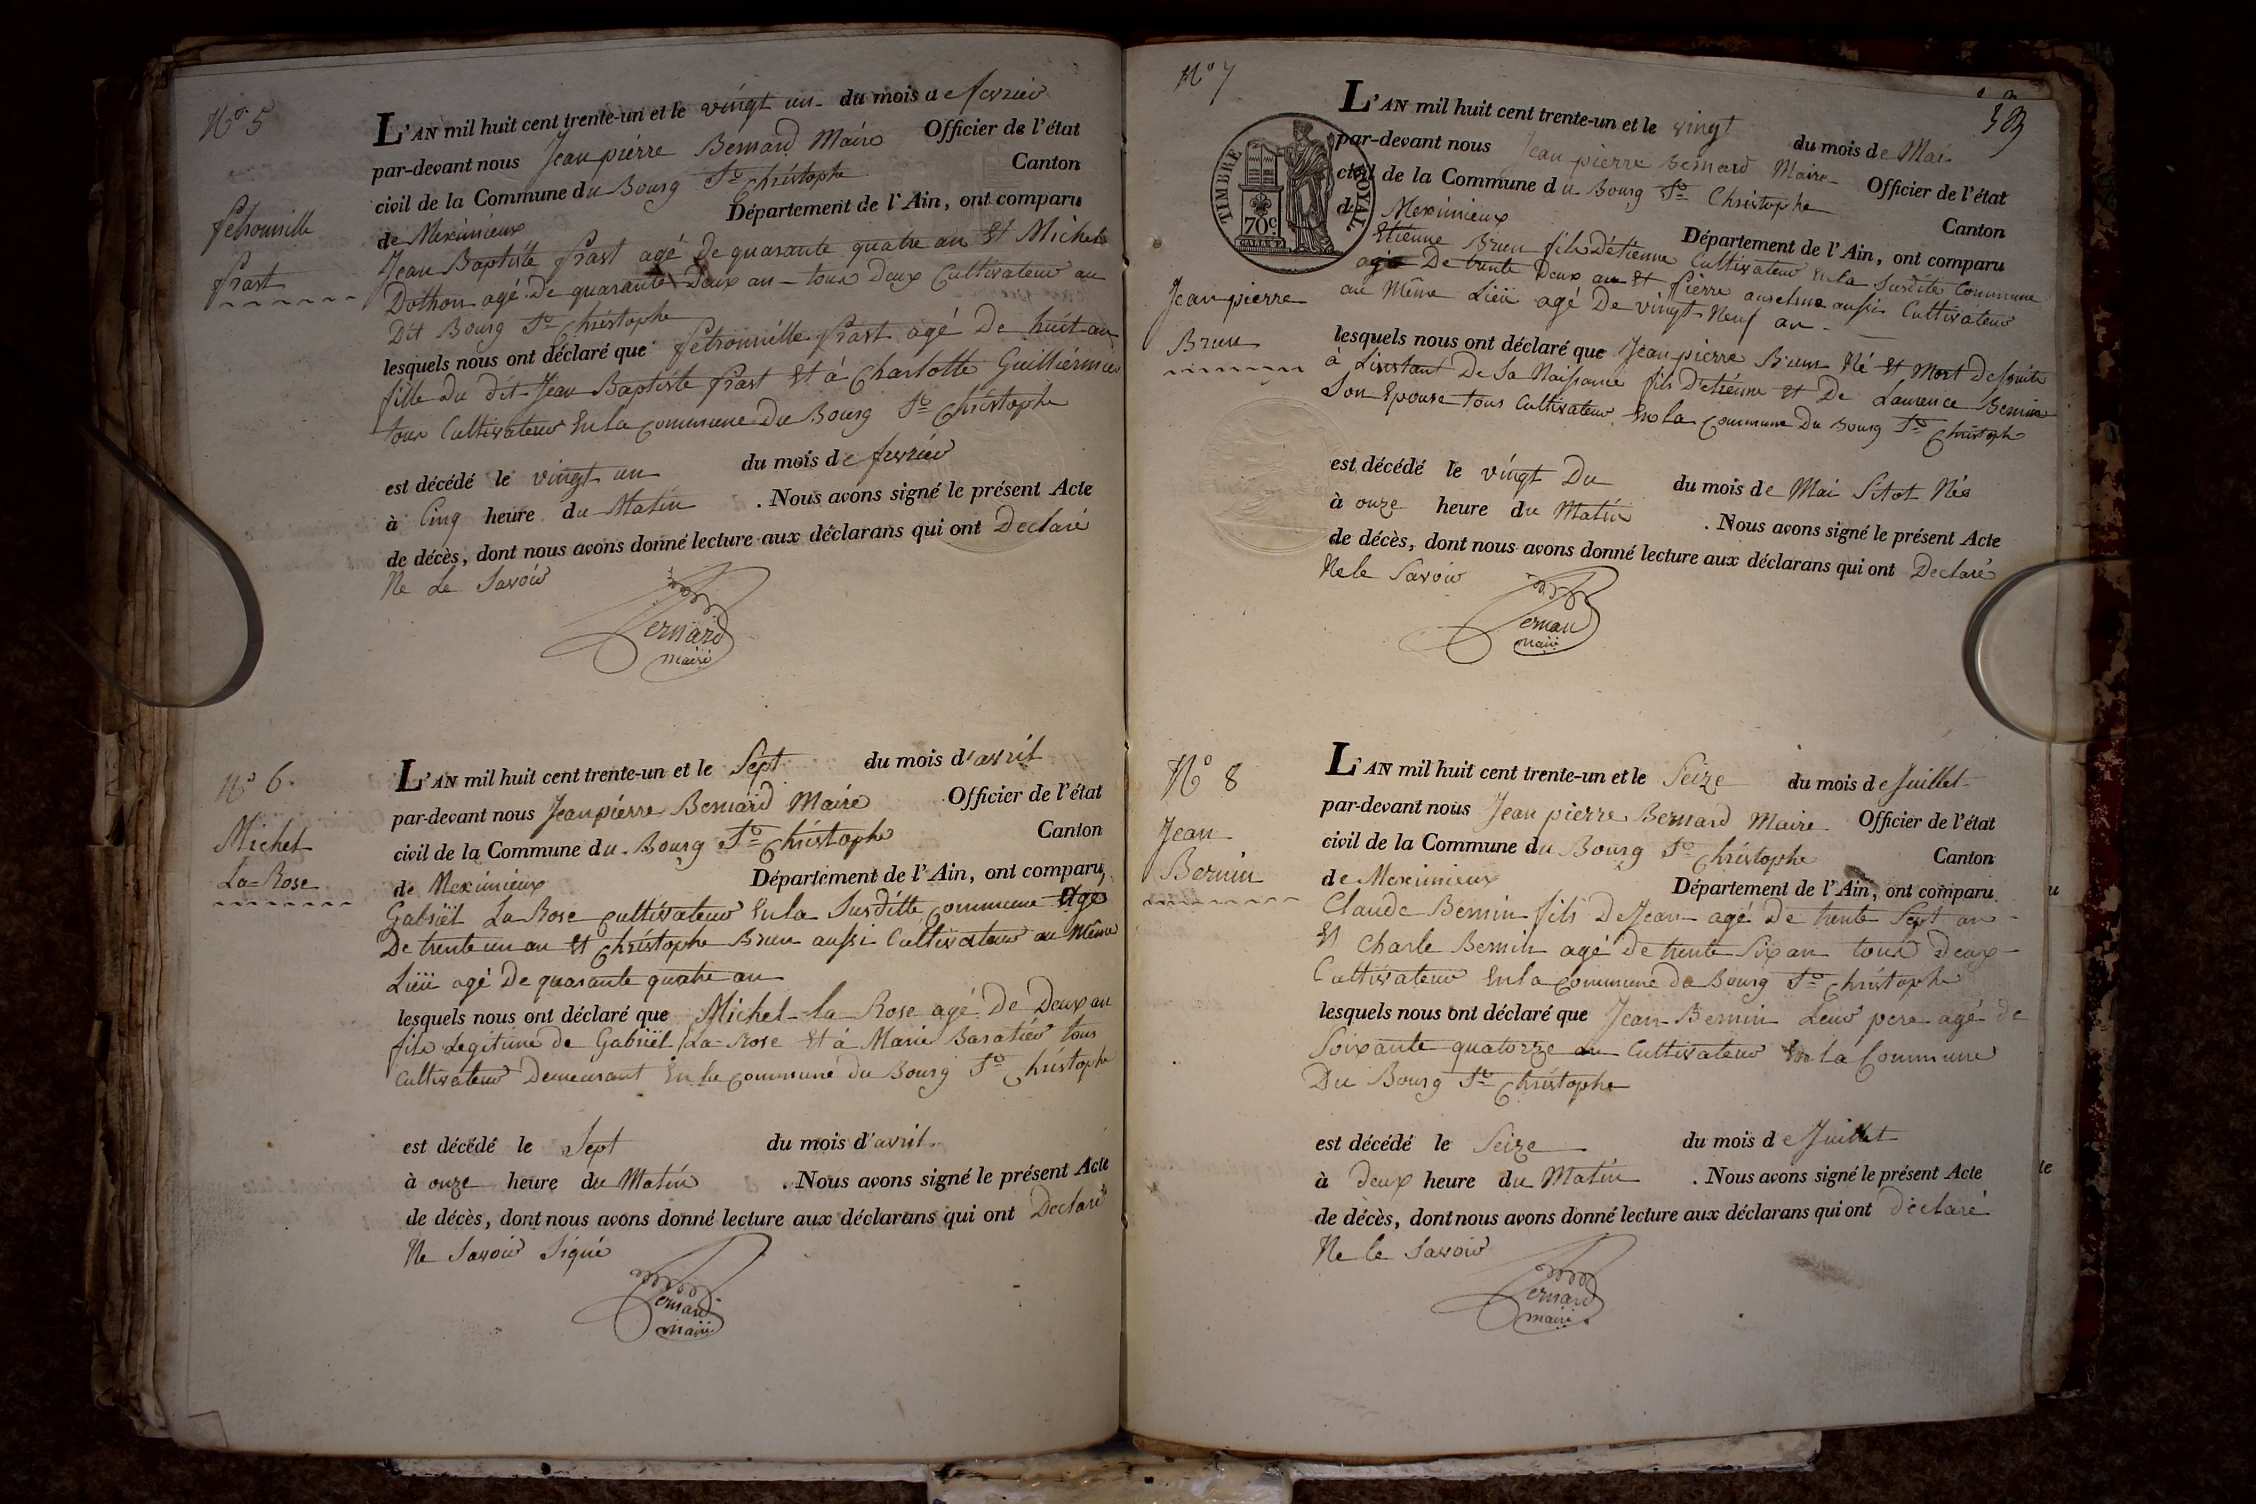 N.º 5
Petronille
Prast
L'AN mil huit cent trente-un et le vingt un du mois de fevrier
par-devant nous Jean pierre Bernard Maire Officier de l'état
civil de la Commune du Bourg St christophe Canton
de Meximieux Département de l'Ain, ont comparu
Jean Baptiste Prast agé De quarante quatre an Et Michel
Dothon agé De quarante Deux an tous Deux Cultivateur au
Dit Bourg St christophe
lesquels nous ont déclaré que Petronille Prast agé De huit an
fille Du dit Jean Baptiste Prast Et à Charlotte
tous Cultivateur En la commune Du Bourg St christophe
est décédé le vingt un du mois de fevrier
à Cinq heure du Matin . Nous avons signé le présent Acte
de décès, dont nous avons donné lecture aux déclarans qui ont Declaré
Ne Le Savoir
Bernard
maire
N.º 6.
Michel
La=Rose
L'AN mil huit cent trente-un et le Sept du mois d'avril
par-devant nous Jean pierre Bernard Maire Officier de l'état
civil de la Commune du Bourg St christophe Canton
de Meximieux Département de l'Ain, ont comparu,
Gabriël La Rose cultivateur En la Susditte commune Age
De trente un an Et christophe Brun aussi Cultivateur au Même
Lieü agé De quarante quatre an
lesquels nous ont déclaré que Michel-la Rose agé De Deux an
fils Legitime de Gabriël La-Rose Et à Marie Baratier tous
Cultivateur Demeurant En la commune du Bourg St christophe
est décédé le Sept du mois d'avril.
à onze heure du Matin . Nous avons signé le présent Acte
de décès, dont nous avons donné lecture aux déclarans qui ont Declaré
Ne Savoir Signé
Bernard
maire
N.º 7
TIMBRE ROYAL
70c
Jean pierre
Brun
L'AN mil huit cent trente-un et le vingt du mois de Mai
par-devant nous Jean pierre Bernard Maire Officier de l'état
civil de la Commune du Bourg St Christophe Canton
de Meximieux Département de l'Ain, ont comparu
Etienne Brun fils D'étienne Cultivateur En la Susdite Commune
agé De trente Deux an Et Pierre anselme aussi Cultivateur
au Même Lieü agé De vingt-Neuf an
lesquels nous ont déclaré que Jean pierre Brun Né Et Mort De Suite
à Linstant De Sa Naissance fils D'etienne Et De Laurence Bernin
Son Epouse tous Cultivateur En la commune Du Bourg St christophe
est décédé le vingt Du du mois de Mai Sitot Née
à onze heure du Matin . Nous avons signé le présent Acte
de décès, dont nous avons donné lecture aux déclarans qui ont Declaré
Ne le Savoir
Bernard
maire
N.º 8
Jean
Bernin
L'AN mil huit cent trente-un et le Seize du mois de Juillet
par-devant nous Jean pierre Bernard Maire Officier de l'état
civil de la Commune du Bourg St christophe Canton
de Meximieux Département de l'Ain, ont comparu
Claude Bernin fils De Jean agé De trente Sept an
Et Charle Bernin agé De trente Six an tous Deux
Cultivateur En la commune de Bourg St christophe
lesquels nous ont déclaré que Jean Bernin Leur pere agé de
Soixante quatorze an Cultivateur En la Commune
Du Bourg St christophe
est décédé le Seize du mois de Juillet
à Deux heure du Matin . Nous avons signé le présent Acte
de décès, dont nous avons donné lecture aux déclarans qui ont declaré
Ne le Savoir
Bernard
maire.